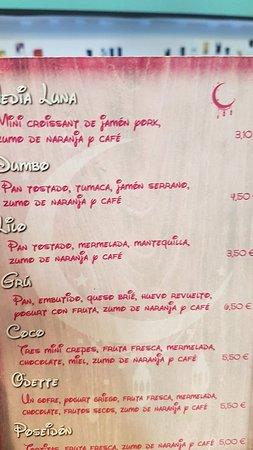 edia Luna
Mini croissant de jamón york,
zumo de naranja y café 3,10
Dumbo
Pan tostado, tumaca, jamón serrano,
zumo de naranja y café 4,50
Lilo
Pan tostado, mermelada, mantequilla,
zumo de naranja y café 3,50 €
Grú
Pan, embutido, queso brie, huevo revuelto,
yogurt con fruta, zumo de naranja y café 6,50 €
Coco
Tres mini crepes, fruta fresca, mermelada,
chocolate, miel, zumo de naranja y café 5,50 €
Odette
Un gofre, yogurt griego, fruta fresca, mermelada,
chocolate, frutos secos, zumo de naranja y café 5,50 €
Poseidón
fruta fresca, zumo de naranja y café 5,00 €